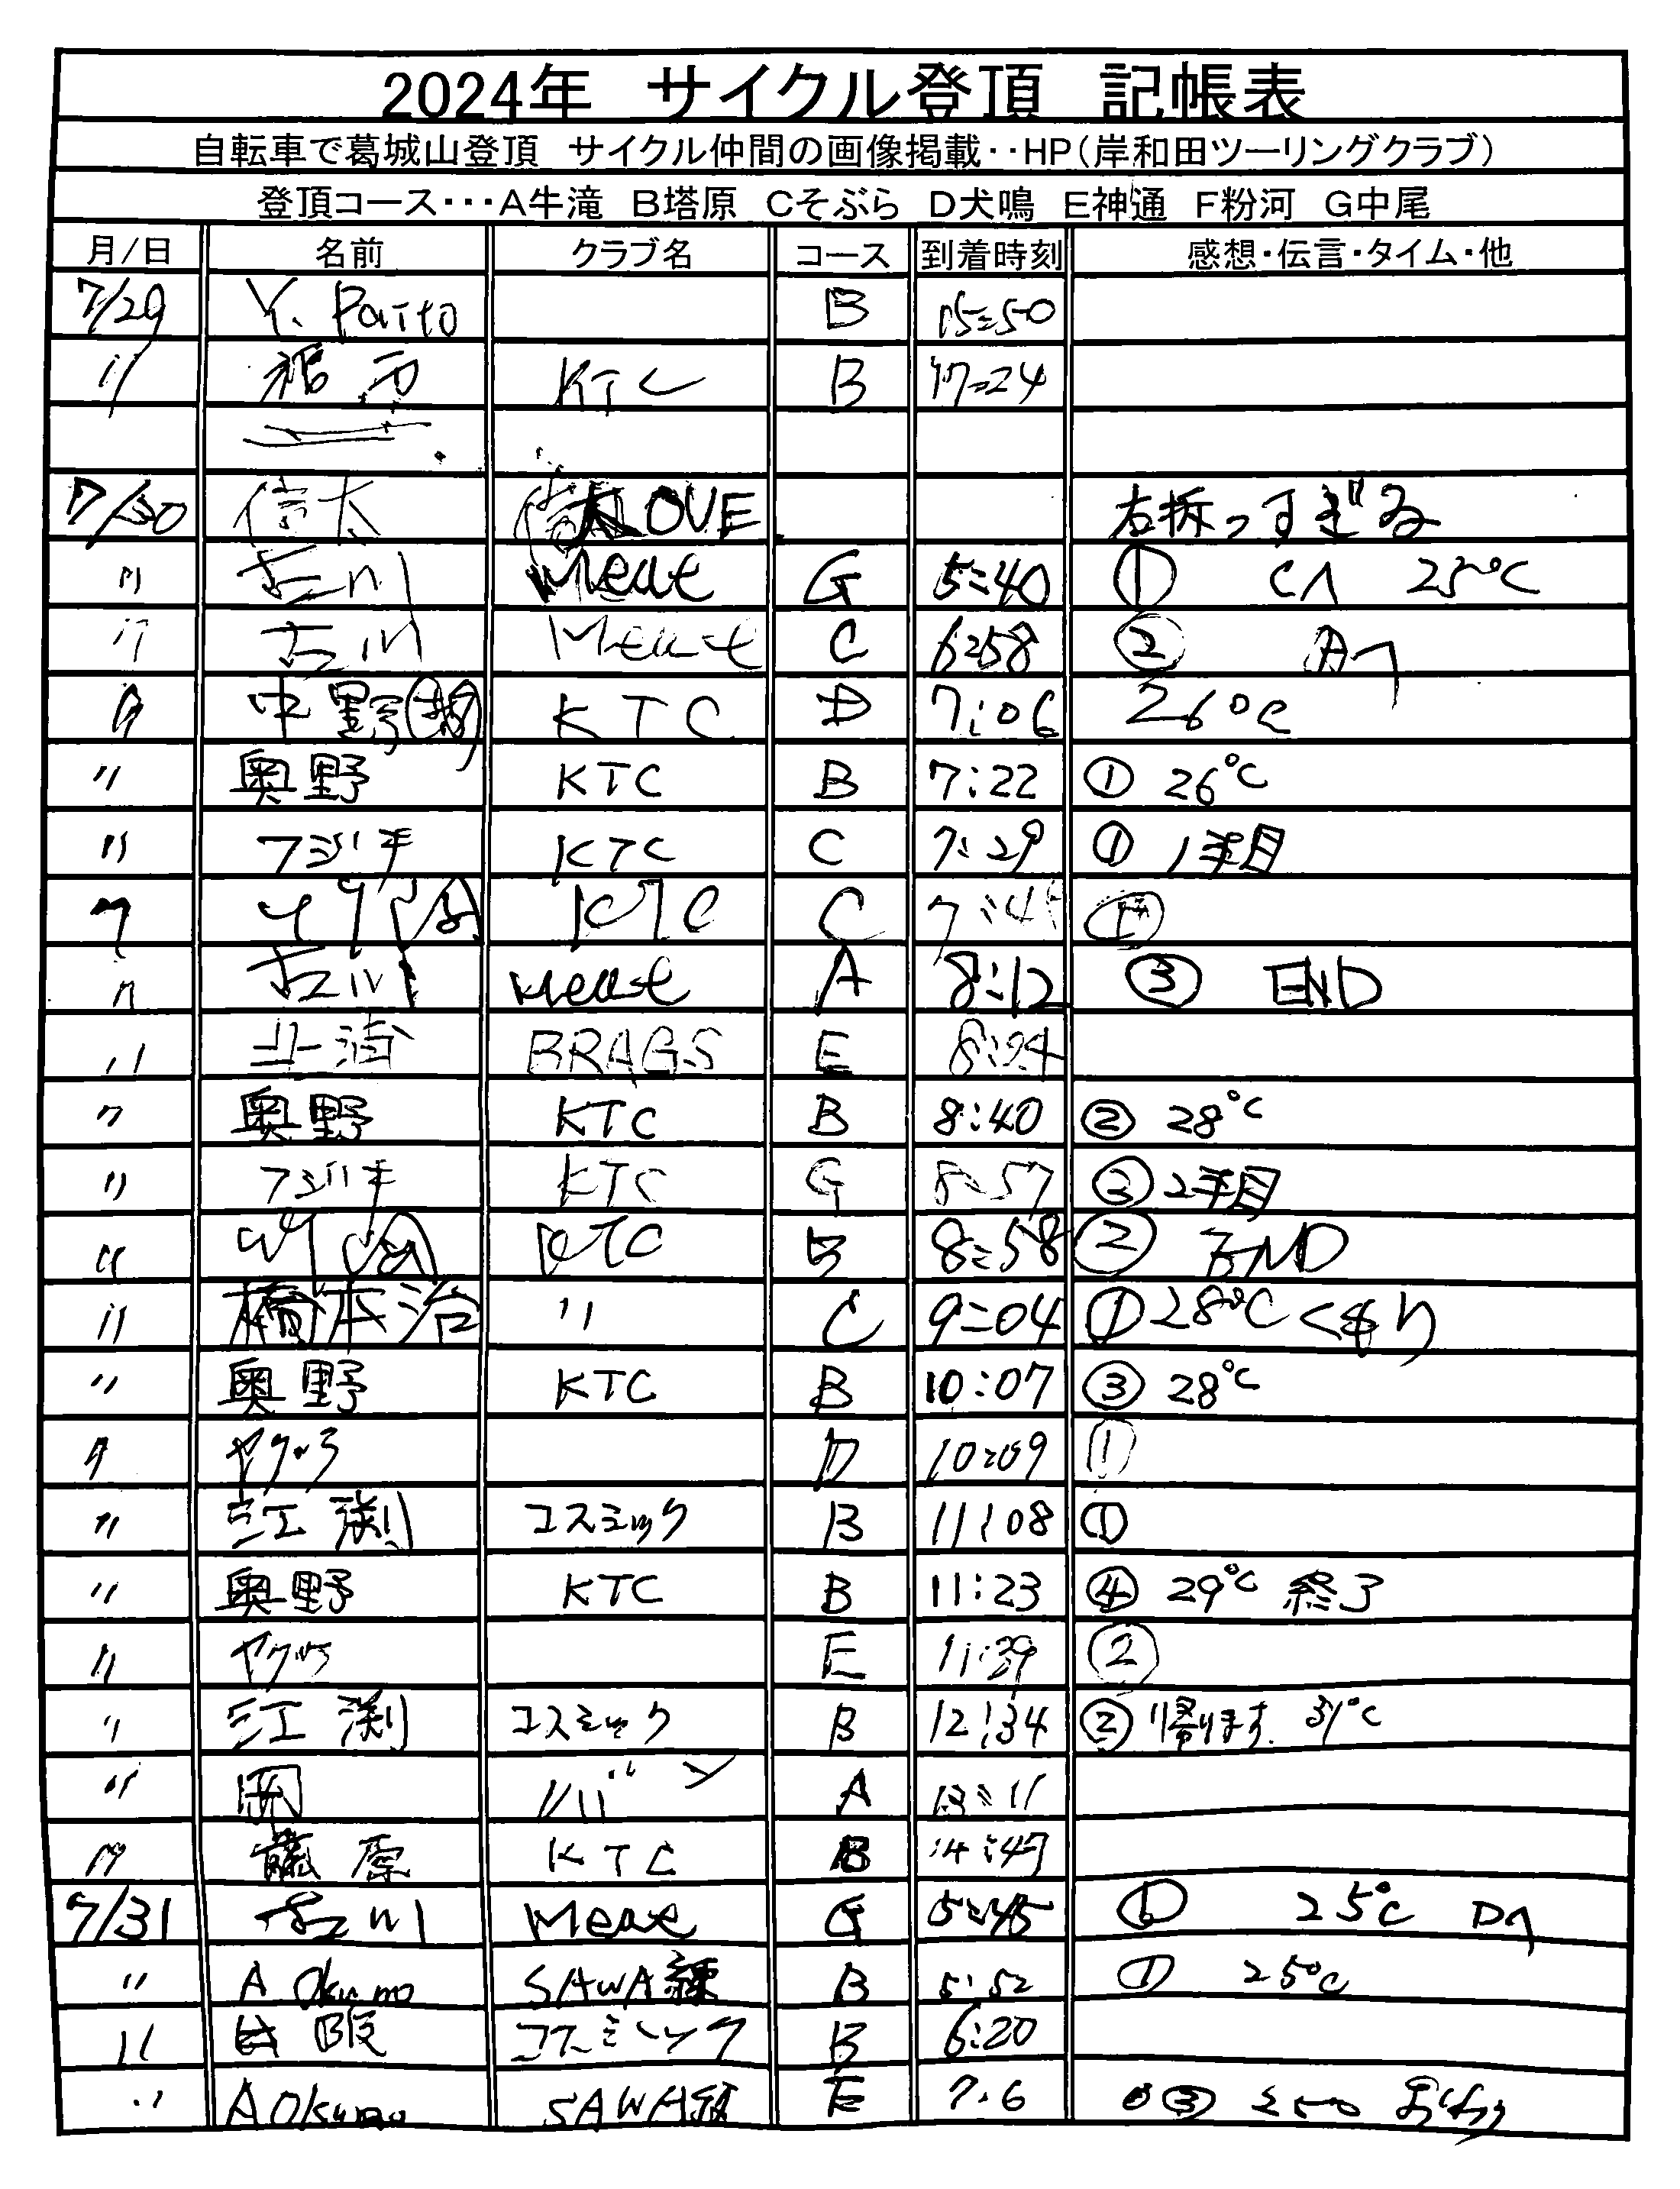 2024年 サイクル登頂 記帳表
自転車で葛城山登頂 サイクル仲間の画像掲載‥HP(岸和田ツーリングクラブ)
登頂コース･･･A牛滝 B塔原 Cそぶら D犬鳴 E神通 F粉河 G中尾
月/日 名前 クラブ名 コース 到着時刻 感想・伝言・タイム・他
7/29 Y. Paito B 15:50
〃 KTC B 17:24
7/30 信太 LOVE 右折っすぎる
〃 古川 Meat G 5:40 ① Cへ 25℃
〃 古川 Meat C 6:58 ② Aへ
〃 中野 KTC D 7:06 26℃
〃 奥野 KTC B 7:22 ① 26℃
〃 フジハチ KTC C 7:29 ① 1本目
〃 KTC C ①
〃 古川 Meat A 8:12 ③ END
〃 北浦 BRAGS E 8:24
〃 奥野 KTC B 8:40 ② 28℃
〃 フジハチ KTC G 8:57 ② 2本目
〃 KTC 8:58 ② END
〃 橋本治 〃 C 9:04 ① 28℃ くもり
〃 奥野 KTC B 10:07 ③ 28℃
〃 ヤクッチ D 10:09 ①
〃 江渕 コスミック B 11:08 ①
〃 奥野 KTC B 11:23 ④ 29℃ 終了
〃 ヤクッチ E 11:39 ②
〃 江渕 コスミック B 12:34 ② 帰ります. 31℃
〃 岡 A 13:11
〃 藤原 KTC B 14:47
7/31 古川 Meat G 5:45 ① 25℃ Dへ
〃 A Okumo SAWA練 B 5:52 ① 25℃
〃 コスミック B 6:20
〃 A Okumo SAWA練 E 7:6